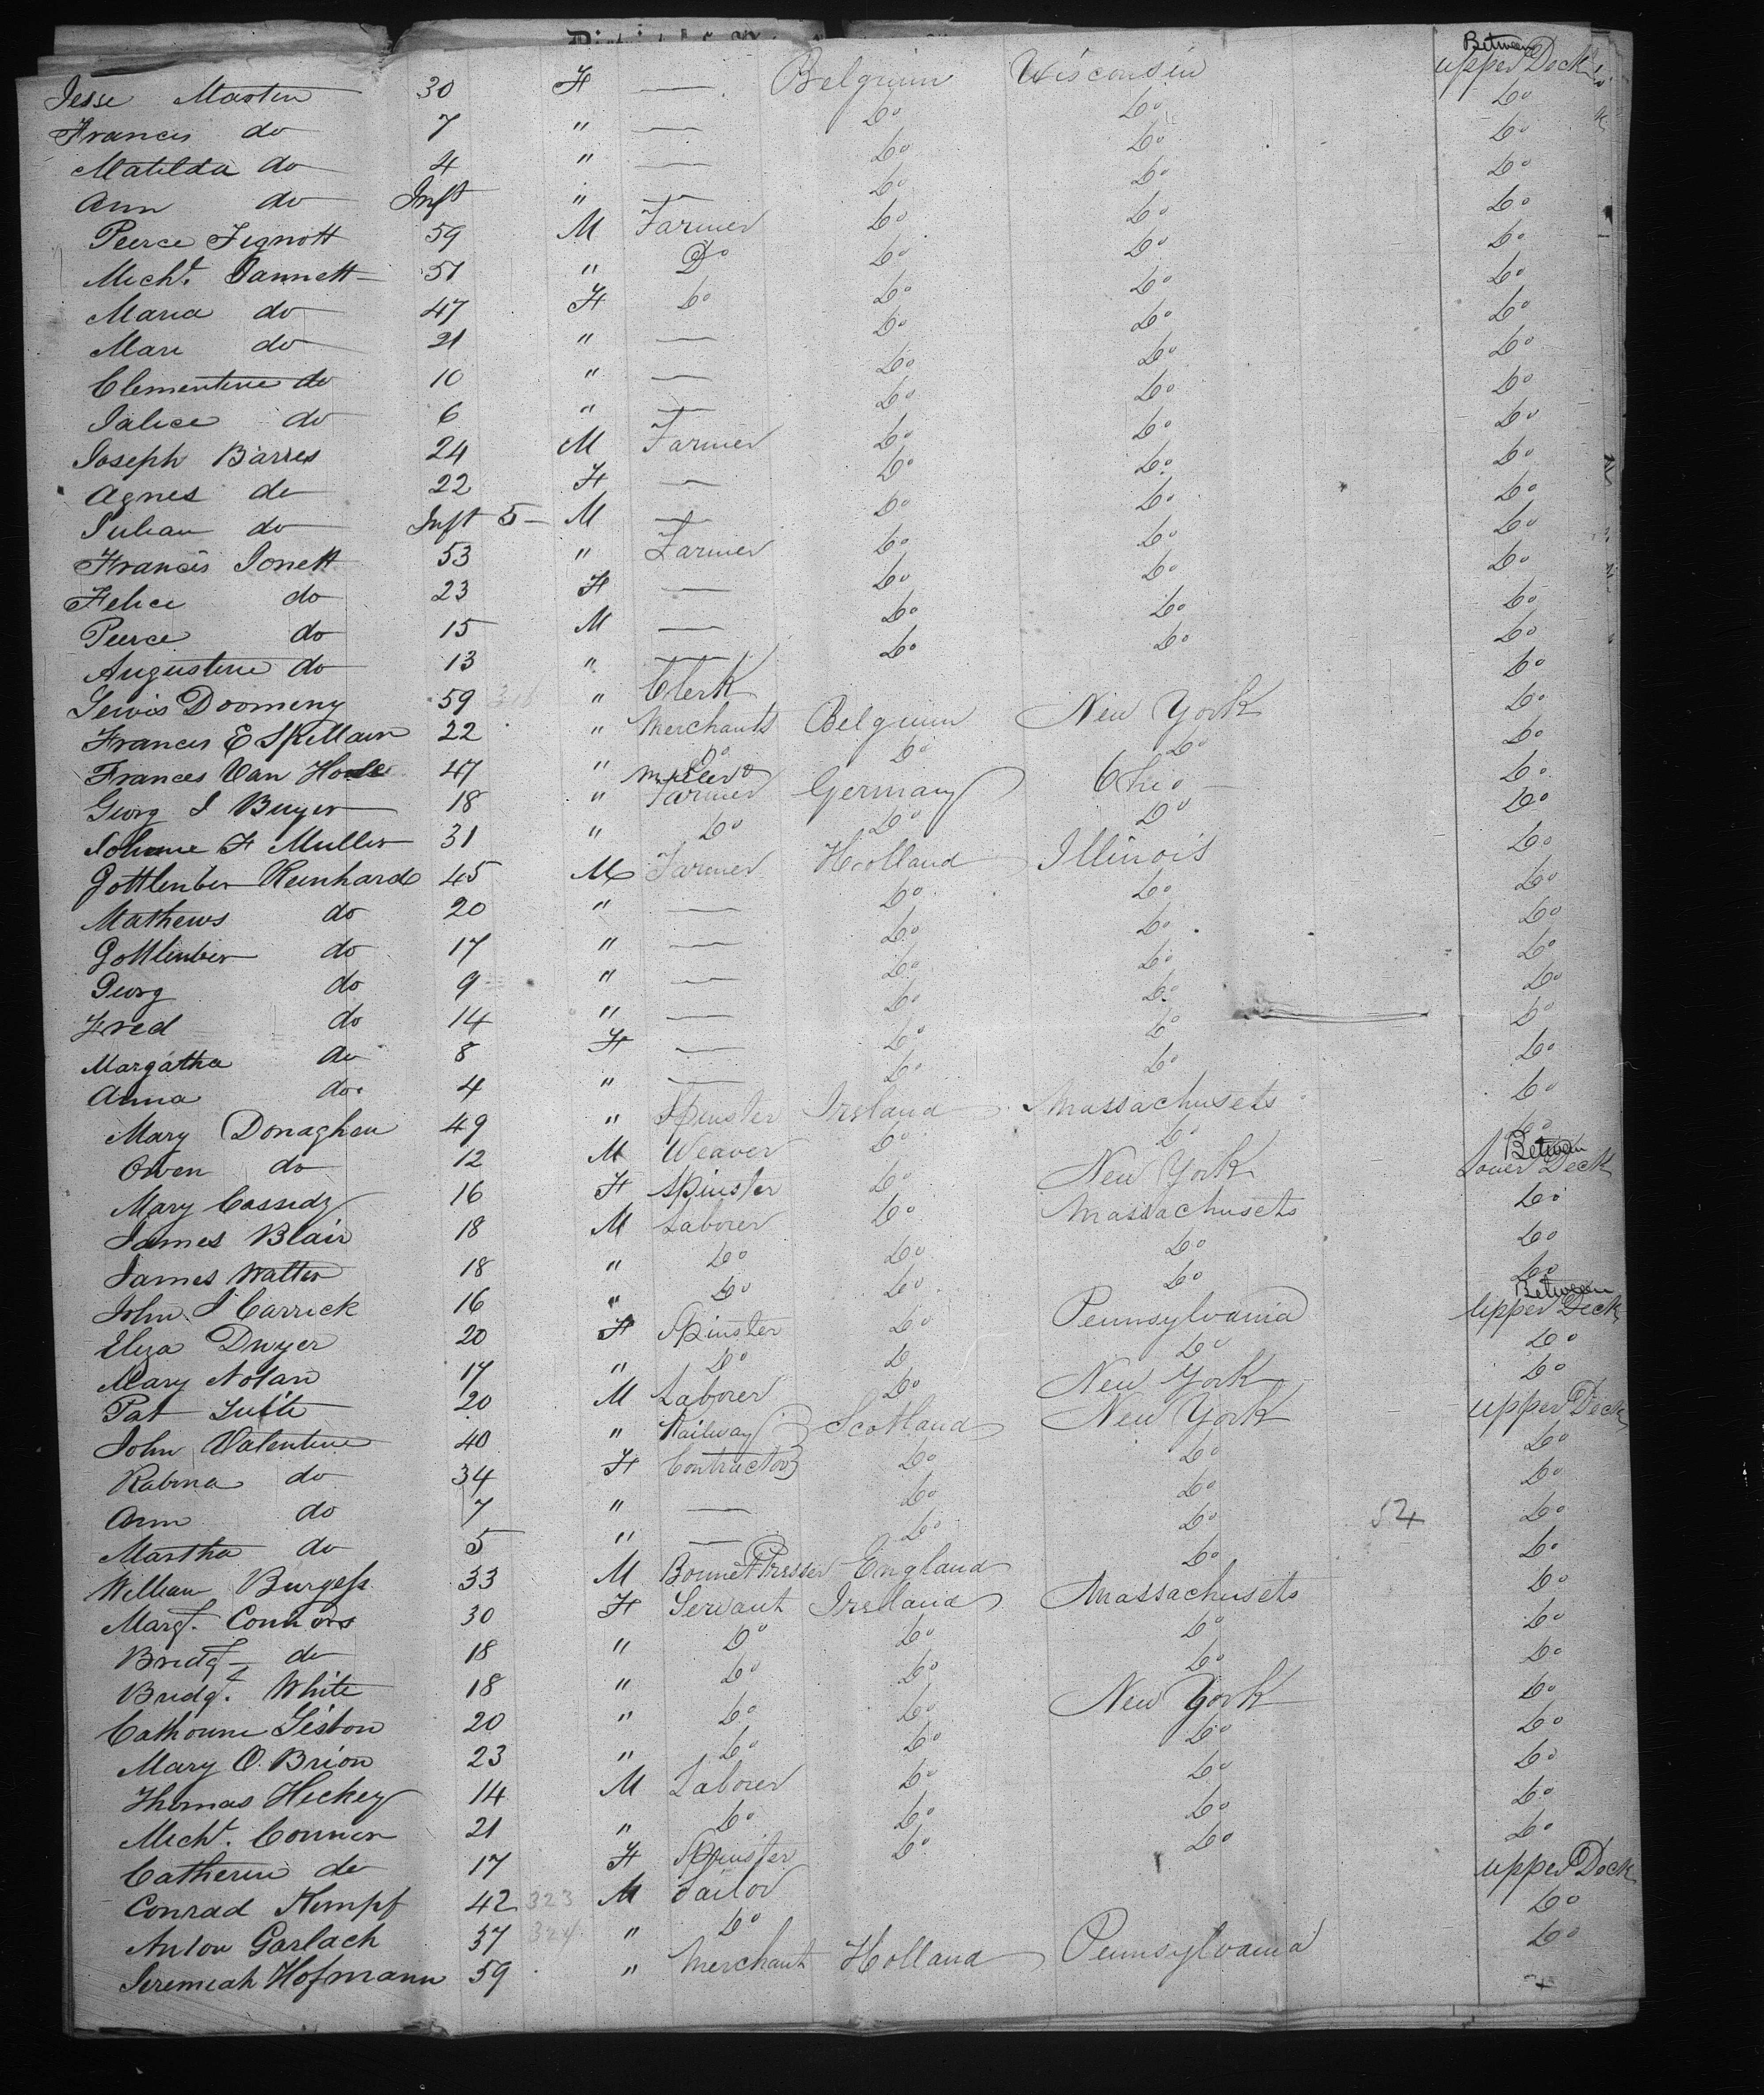 Between
Jesse Martin 30 F — Belgium Wisconsin upper Deck
Francis do 7 " — Do Do Do
Matilda do 4 " — Do Do Do
Ann do Inft " — Do Do Do
Peerce Fignott 59 M Farmer Do Do Do
Michl. Jannett 51 " Do Do Do Do
Maria do 47 F Do Do Do Do
Mari do 21 " — Do Do Do
Clementine do 10 " — Do Do Do
Jalice do 6 " — Do Do Do
Joseph Barres 24 M Farmer Do Do Do
Agnes do 22 F — Do Do Do
Julian do Inft 5 M — Do Do Do
Francis Jonett 53 " Farmer Do Do Do
Felice do 23 F — Do Do Do
Peerce do 15 M — Do Do Do
Augustine do 13 " — Do Do Do
Lewis Doomeny 59 " Clerk Do
Francis E Skillain 22 " Merchants Belgium New York Do
Frances Van 47 " Do Do Do Do
Georg J Buyer 18 " Farmer Germany Ohio Do
F Muller 31 " Do Do Do Do
Gottlenber Reinhard 45 M Farmer Holland Illinois Do
Mathews do 20 " — Do Do Do
Gottlenber do 17 " — Do Do Do
Georg do 9 " — Do Do Do
Fred do 14 " — Do Do Do
Margatha do 8 F — Do Do Do
Anna do 4 " — Do Do Do
Mary Donaghen 49 " Spinster Ireland Massachusets Do
Owen do 12 M Weaver Do Do Do
Between
Mary Cassidy 16 F Spinster Do New York Lower Deck
James Blair 18 M Laborer Do Massachusets Do
James Walter 18 " Do Do Do Do
John J Carrick 16 " Do Do Do Do
Between
Eliza Dwyer 20 F Spinster Do Pennsylvania Upper Deck
Mary Nolan 17 " Do D Do Do
Pat 20 M Laborer Do New York Do
John Valentine 40 " Railway Scotland New York upper Deck
Rabina do 34 F Contractor Do Do Do
Ann do 7 " — Do Do Do
Martha do 5 " — Do Do 52 Do
William Burgess 33 M Bonnet Presser England Do Do
Margt. Connors 30 F Servant Ireland Massachusets Do
Bridgt do 18 " Do Do Do Do
Bridgt. White 18 " Do Do Do Do
Cathorine Liston 20 " Do Do New York Do
Mary O. Brion 23 " Do Do Do Do
Thomas Hickey 14 M Laborer Do Do Do
Michl. Conner 21 " Do Do Do Do
Catherin do 17 F Spinster Do Do Do
Conrad Kempf 42 323 M Tailor upper Deck
Anton Garlach 37 324 " Do Do
Jeremiah Hofmann 59 " Merchant Holland Pennsylvania Do